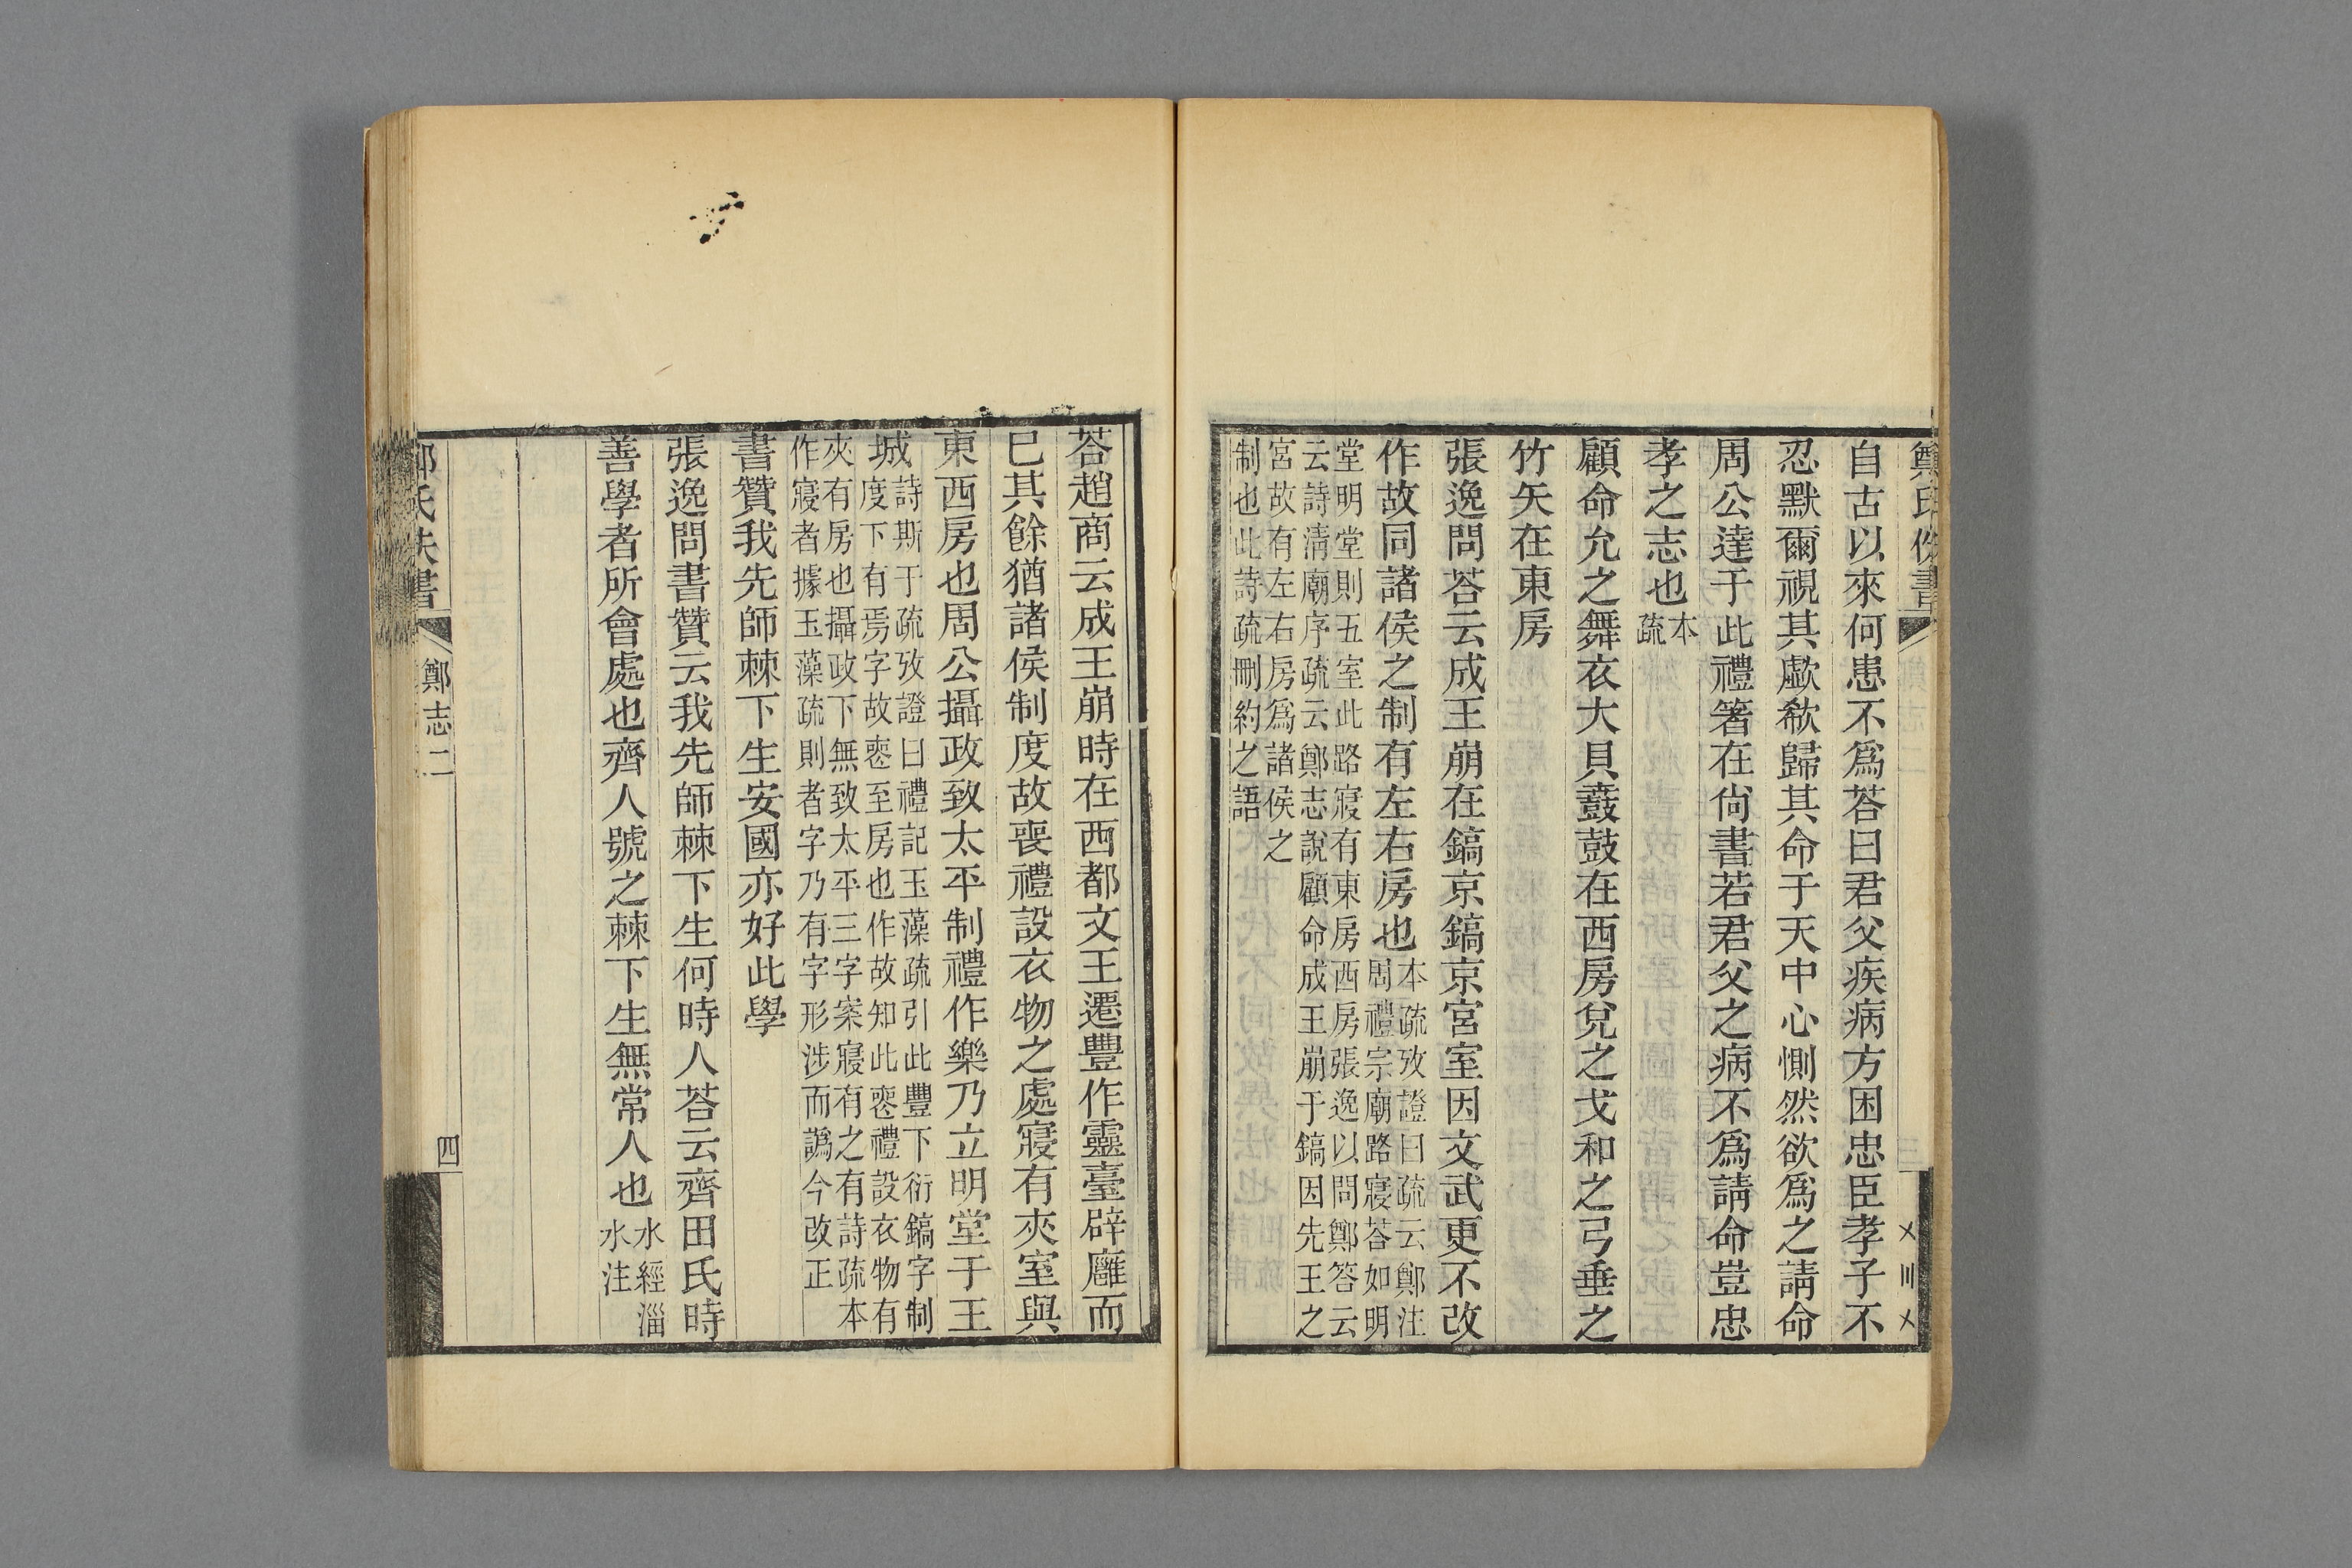 自古以來何患不爲荅曰君父疾病方困忠臣孝子不
忍默爾視其歔欷歸其命于天中心惻然欲爲之請命
周公達于此禮箸在尙書若君父之病不爲請命豈忠
孝之志也本疏
顧命允之舞衣大貝鼖鼓在西房兌之戈和之弓垂之
竹矢在東房
張逸問荅云成王崩在鎬京鎬京宮室因文武更不改
作故同諸侯之制有左右房也本疏攷證曰疏云鄭注
周禮宗廟路寢荅如明
堂明堂則五室此路寢有東房西房張逸以問鄭答云
云詩淸廟序疏云鄭志說顧命成王崩于鎬因先王之
宮故有左右房爲諸侯之
制也此詩疏刪約之語
荅趙商云成王崩時在西都文王遷豐作靈臺辟廱而
已其餘猶諸侯制度故喪禮設衣物之處寢有夾室與
東西房也周公攝政致太平制禮作樂乃立明堂于王
城詩斯于疏攷證曰禮記玉藻疏引此豐下衍鎬字制
度下有焉字故喪至房也作故知此喪禮設衣物有
夾有房也攝政下無致太平三字案寢有之有詩疏本
作寢者據玉藻疏則者字乃有字形涉而譌今改正
書贊我先師棘下生安國亦好此學
張逸問書贊云我先師棘下生何時人荅云齊田氏時
善學者所會處也齊人號之棘下生無常人也水經淄
水注
鄭志二
四